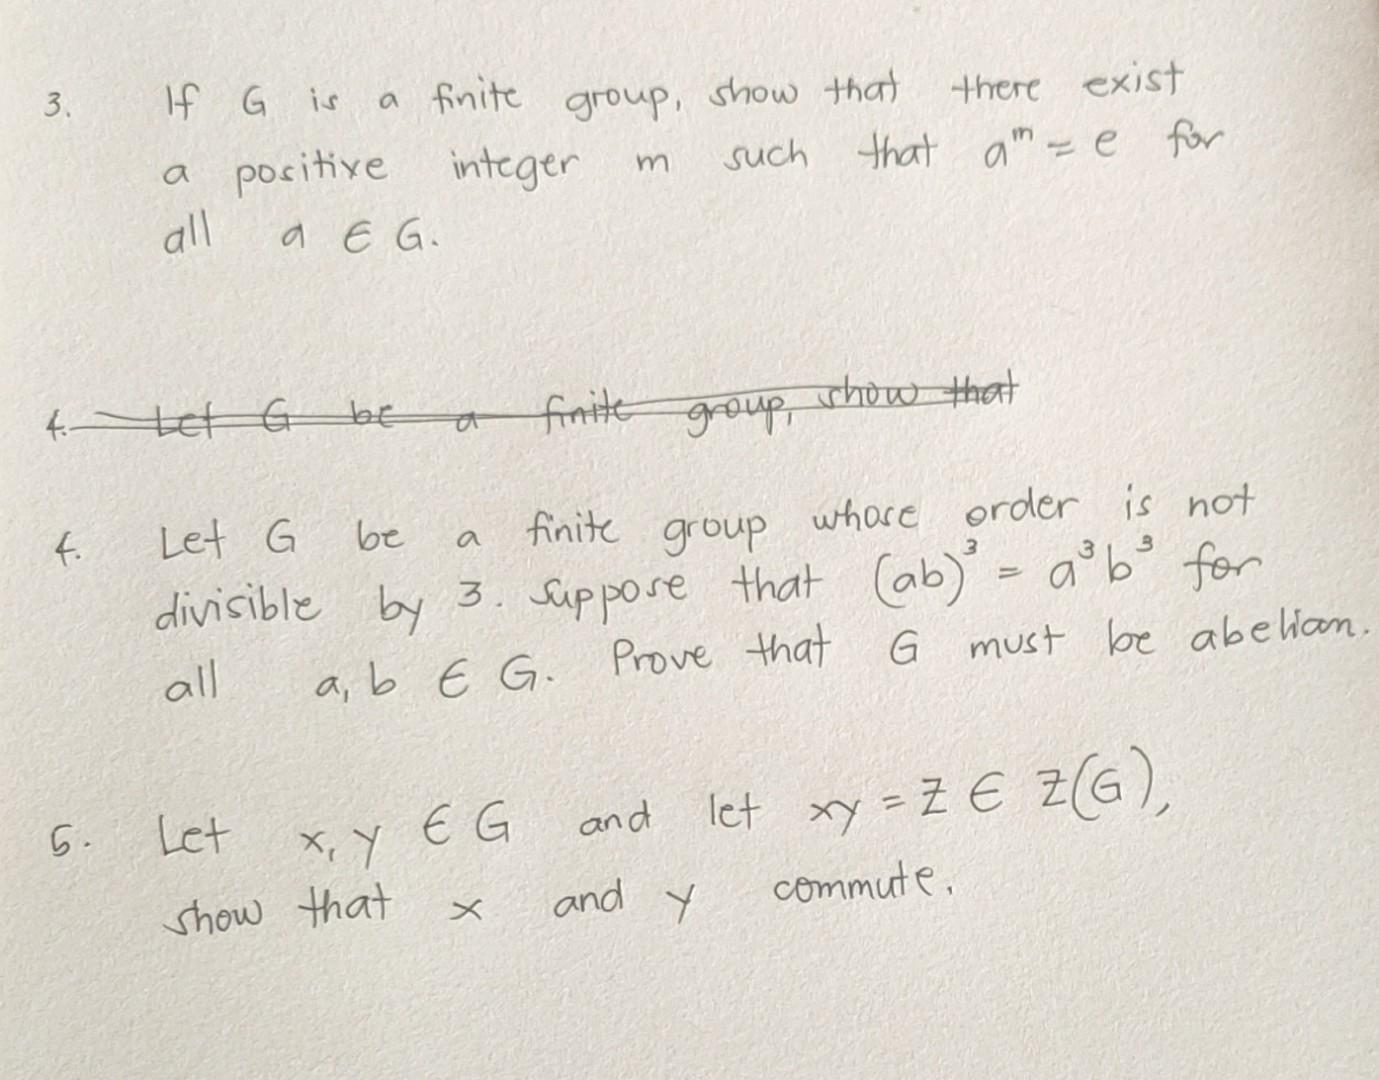 3. If G is a finite group, show that there exist
a positive integer m such that aᵐ = e for
all a ∈ G.
4. Let G be a finite group, show that
4. Let G be a finite group whose order is not
divisible by 3. Suppose that (ab)³ = a³b³ for
all a, b ∈ G. Prove that G must be abelian.
5. Let x, y ∈ G and let xy = z ∈ Z(G),
show that x and y commute.